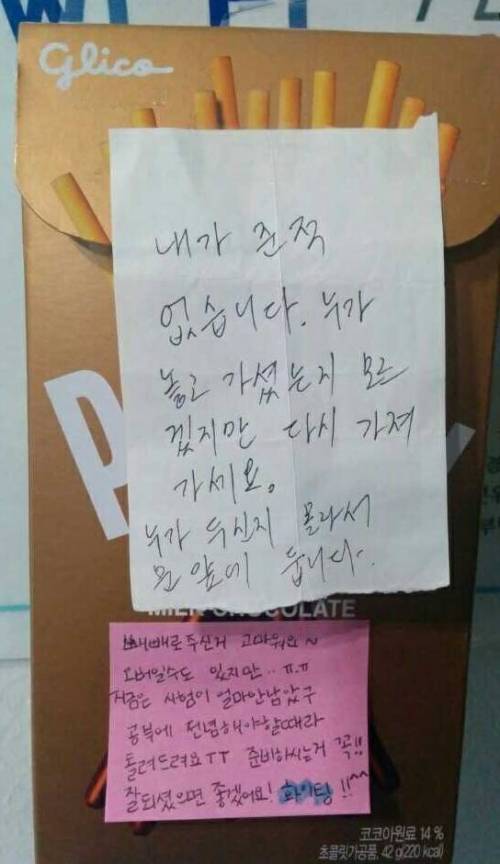 Glico
내가 준적
없습니다. 누가
놓고 가셨는지 모르
겠지만 다시 가져
가세요.
누가 두신지 몰라서
문앞에 둡니다.
MILK CHOCOLATE
빼빼로주신거 고마워요~
오버일수도 있지만.. ㅠ.ㅠ
지금은 시험이 얼마안남았구
공부에 전념해야할때라
돌려드려요ㅜㅜ 준비하시는거 꼭!!
잘되셨으면 좋겠어요! 화이팅!!^^
코코아원료 14%
초콜릿가공품, 42 g(220 kcal)